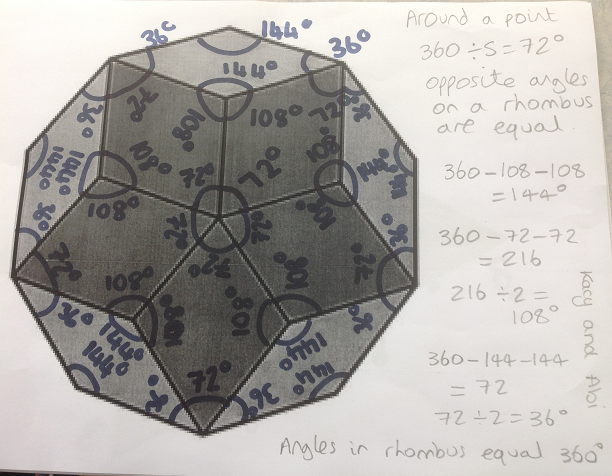 Around a point
360 ÷ 5 = 72°
opposite angles
on a rhombus
are equal.
360 - 108 - 108
= 144°
360 - 72 - 72
= 216
216 ÷ 2 =
108°
360 - 144 - 144
= 72
72 ÷ 2 = 36°
Kacy and Abi
Angles in rhombus equal 360°
36° 144° 36°
144°
36° 72° 108° 108° 72° 36°
144° 144° 108° 72° 72° 108° 144° 144°
36° 108° 72° 72° 108° 36°
72° 108° 72° 108° 72°
36° 144° 108° 108° 144° 36°
144° 72° 144°
36° 36°